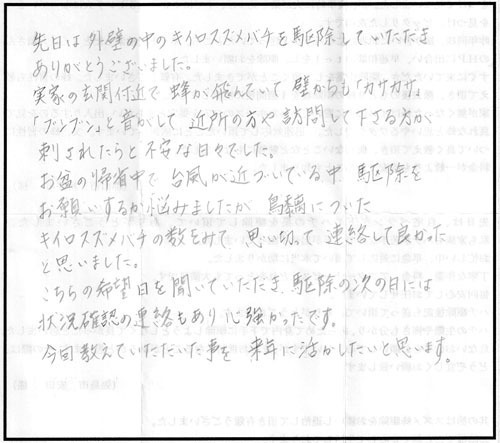 先日は外壁の中のキイロスズメバチを駆除していただき
ありがとうございました。
実家の玄関付近で蜂が飛んでいて、壁からも「カサカサ」
「ブンブン」と音がして近所の方や訪問して下さる方が
刺されたらと不安な日々でした。
お盆の帰省中で台風が近づいている中駆除を
お願いするか悩みましたが鳥についた
キイロスズメバチの数をみて思い切って連絡して良かった
と思いました。
こちらの希望日を聞いていただき、駆除の次の日には
状況確認の連絡もあり心強かったです。
今回教えていただいた事を来年に活かしたいと思います。